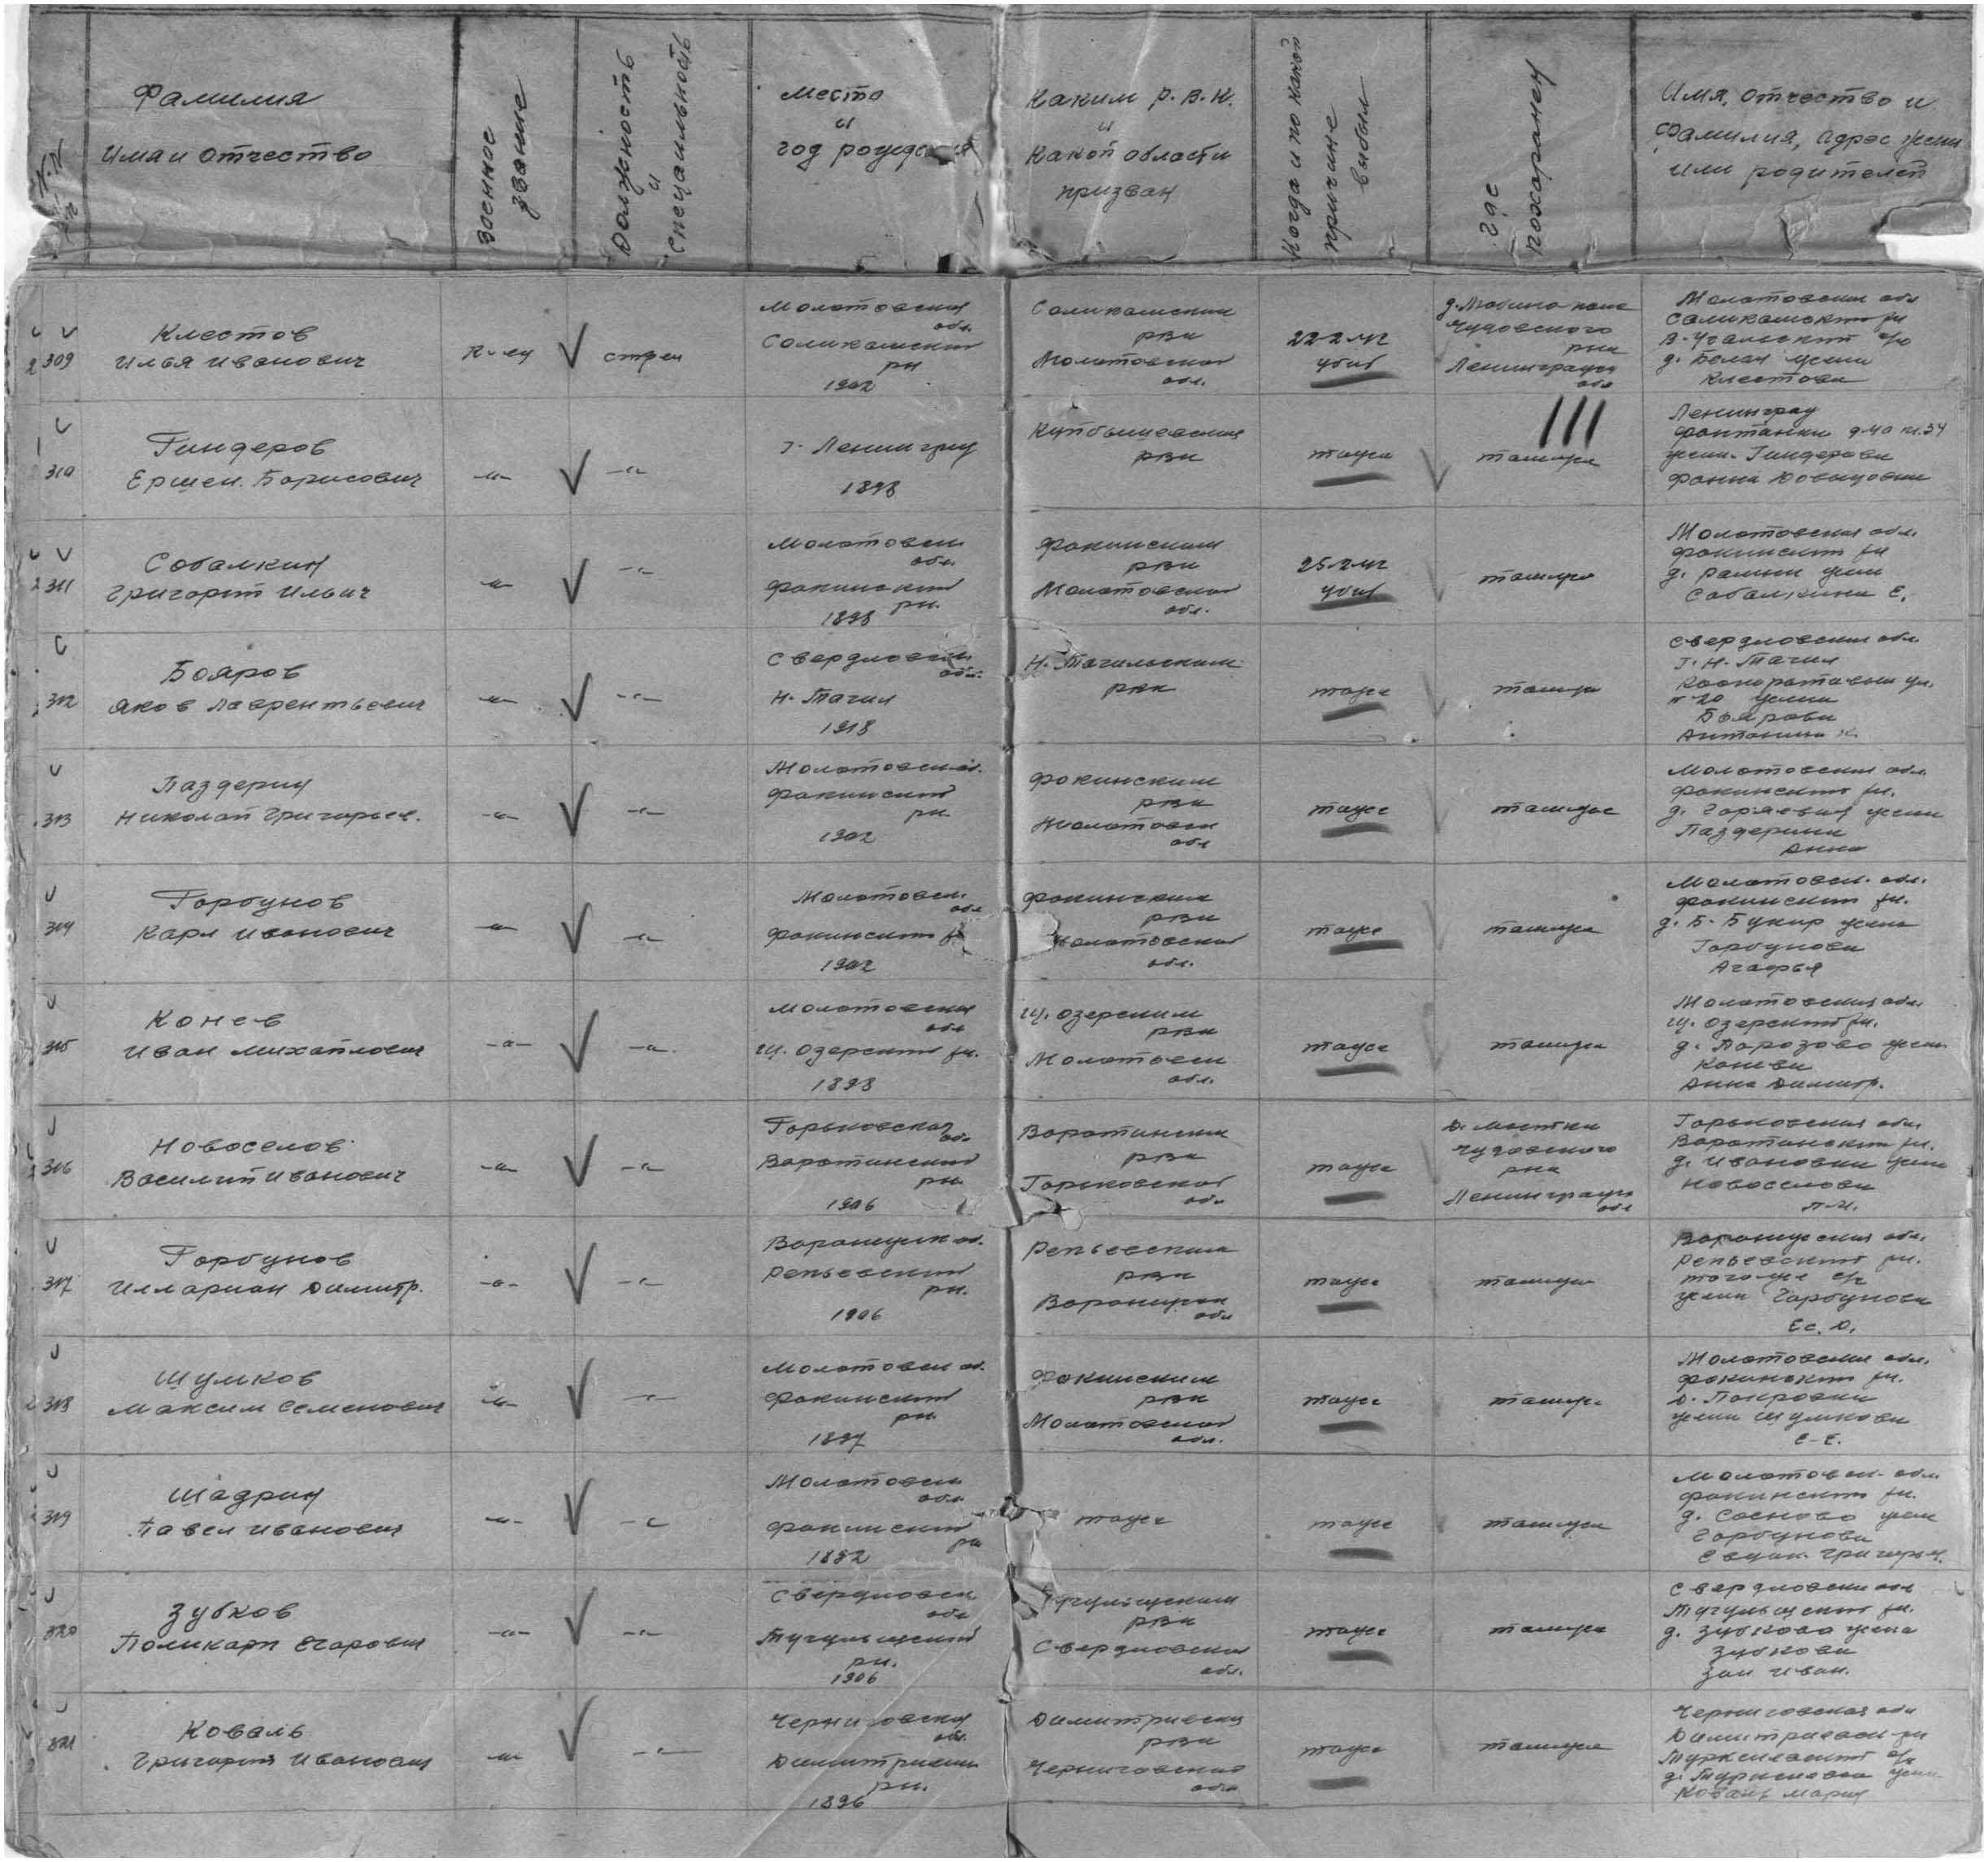 Фамилия
Имя и Отчество
Военное
звание
Должность
и
специальность
Место
и
год рождения
Каким Р.В.К.
и
какой области
призван
Когда и по какой
причине
выбыл
Где
похоронен
Имя, Отчество и
Фамилия, адрес жены
или родителей
309
Клестов
Илья Иванович
К-ец
стрел
Молотовская
обл.
Соликамский
рн
1902
Соликамским
рвк
Молотовской
обл.
22 2 42
убит
д. Любино поле
Чудовского
рна
Ленинградск
обл
Молотовская обл
Соликамский рн
д. Белая жена
Клестова
310
Гиндеров
Ершен. Борисович
-"-
-"-
г. Ленинград
1898
Куйбышевским
рвк
тоуже
там же
Ленинград
фонтанка д 40 кв. 34
жена Гиндерова
Фанна Довыдовна
311
Собалкин
Григорий Ильич
-"-
-"-
Молотовск.
обл.
Фокинский
рн.
1898
Фокинским
рвк
Молотовской
обл.
25 2 42
убит
там же
Молотовская обл.
Фокинский рн
жена
Собалкина Е.
312
Бояров
Яков Лаврентьевич
-"-
-"-
Свердловск.
обл.
Н. Тагил
1918
Н. Тагильским
рвк
тоуже
там же
Свердловская обл.
г. Н. Тагил
Кооперативная ул.
№ 20 жена
Боярова
Антонина К.
313
Паздерин
Николай Григорьев.
-"-
-"-
Молотовск. об.
Фокинский
рн.
1902
Фокинским
рвк
Молотовск
обл
тоуже
там же
Молотовская обл.
Фокинский рн.
д. Горяевка жена
Паздерина
Анна
314
Горбунов
Карл Иванович
-"-
-"-
Молотовск.
обл
Фокинский рн
1902
Фокинским
рвк
Молотовской
обл.
тоуже
там же
Молотовск. обл.
Фокинский рн.
д. Б. Букир жена
Горбунова
Агафья
315
Конев
Иван Михайлович
-"-
-"-
Молотовская
обл
Щ. Озерский рн.
1898
Щ. Озерским
рвк
Молотовск
обл.
тоуже
там же
Молотовская обл.
Щ. Озерский рн.
д. Порозово жена
Конева
Анна Димитр.
316
Новоселов
Василий Иванович
-"-
-"-
Горьковская
обл
Воротынский
рн.
1906
Воротынским
рвк
Горьковской
обл
тоуже
д. Мостки
Чудовского
рна
Ленинградск
обл
Горьковская обл.
Воротынский рн.
д. Ивановка жена
Новоселова
П.И.
317
Горбунов
Илларион Димитр.
-"-
-"-
Воронежск об.
Репьевский
рн.
1906
Репьевским
рвк
Воронежск
обл
тоуже
там же
Воронежская обл.
Репьевский рн.
того же с/с
жена Горбунова
Ес. Д.
318
Шумков
Максим Семенович
-"-
-"-
Молотовск об.
Фокинский
рн.
1897
Фокинским
рвк
Молотовской
обл.
тоуже
там же
Молотовская обл.
Фокинский рн.
д. Покровка
жена Шумкова
Е-Е.
319
Шадрин
Павел Иванович
-"-
-"-
Молотовск
обл
Фокинский
рн
1892
тоуже
тоуже
там же
Молотовск. обл.
Фокинский рн.
д. Сосново жена
Горбунова
Григорьев.
320
Зубков
Поликарп Егорович
-"-
-"-
Свердловск
обл
Тугулымский
рн.
1906
Тугулымским
рвк
Свердловской
обл.
тоуже
там же
Свердловская обл
Тугулымский рн.
д. Зубково жена
Зубкова
Зои Иван.
321
Коваль
Григорий Иванович
-"-
-"-
Черниговская
обл.
Димитриевск
рн.
1896
Димитриевск
рвк
Черниговской
обл
тоуже
там же
Черниговская обл
Димитриевск рн
жена
Коваль Мария